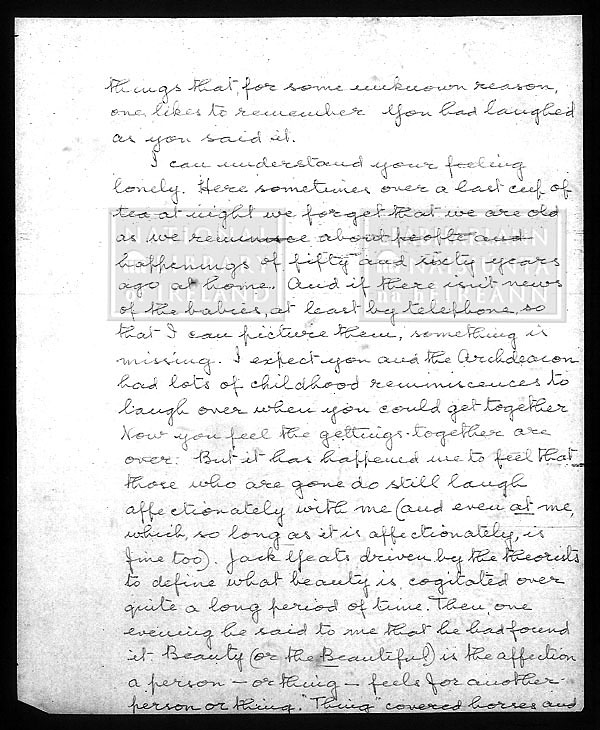 things that for some unknown reason,
one likes to remember You had laughed
as you said it.
I can understand your feeling
lonely. Here sometimes over a last cup of
tea at night we forget that we are old
as we reminisce about people and
happenings of fifty and sixty years
ago at home. And if there isn't news
of the babies, at least by telephone, so
that I can picture them, something is
missing. I expect you and the Archdeacon
had lots of childhood reminiscences to
laugh over when you could get together
Now you feel the gettings-together are
over. But it has happened me to feel that
those who are gone do still laugh
affectionately with me (and even at me,
which, so long as it is affectionately, is
fine too). Jack Yeats driven by the theorists
to define what beauty is cogitated over
quite a long period of time. Then, one
evening he said to me that he had found
it - Beauty (or the Beautiful) is the affection
a person - or thing - feels for another
person or thing. "Thing" covered horses and
NATIONAL
LIBRARY
of IRELAND
LEABHARLANN
NÁISIÚNTA
na hÉIREANN